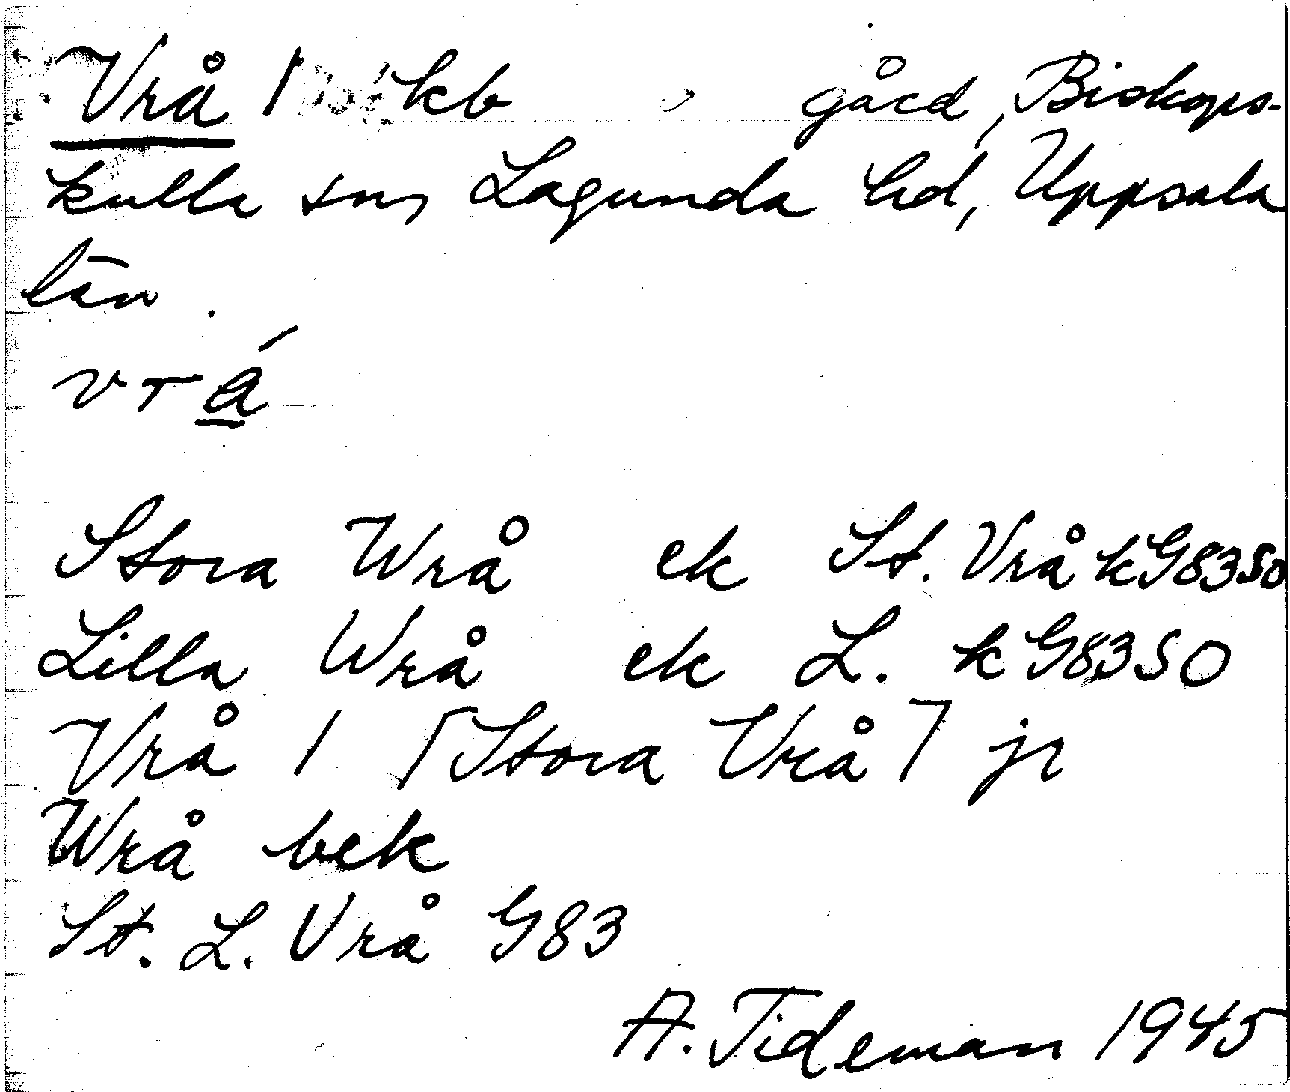 Vrå 1 kb gård, Biskops-
kulla sn, Lagunda hd, Uppsala
län.
vrá
Stora Wrå ek St. Vrå kG83SO
Lilla Wrå ek L. kG83SO
Vrå 1 [Stora Vrå] jr
Wrå bek
St. L. Vrå G83
A. Tideman 1945